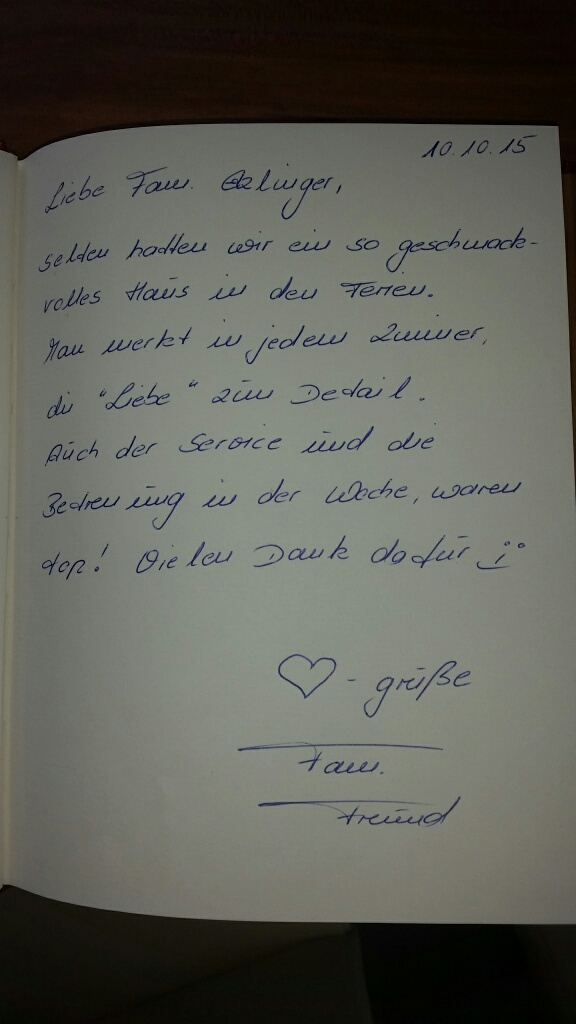 10.10.15
Liebe Fam.
selten hatten wir ein so geschmack-
volles Haus in den Ferien.
Man merkt in jedem Zimmer,
die "Liebe" zum Detail.
Auch der Service und die
Betreuung in der Woche, waren
top! Vielen Dank dafür :)
♡ - grüße
Fam.
Freund